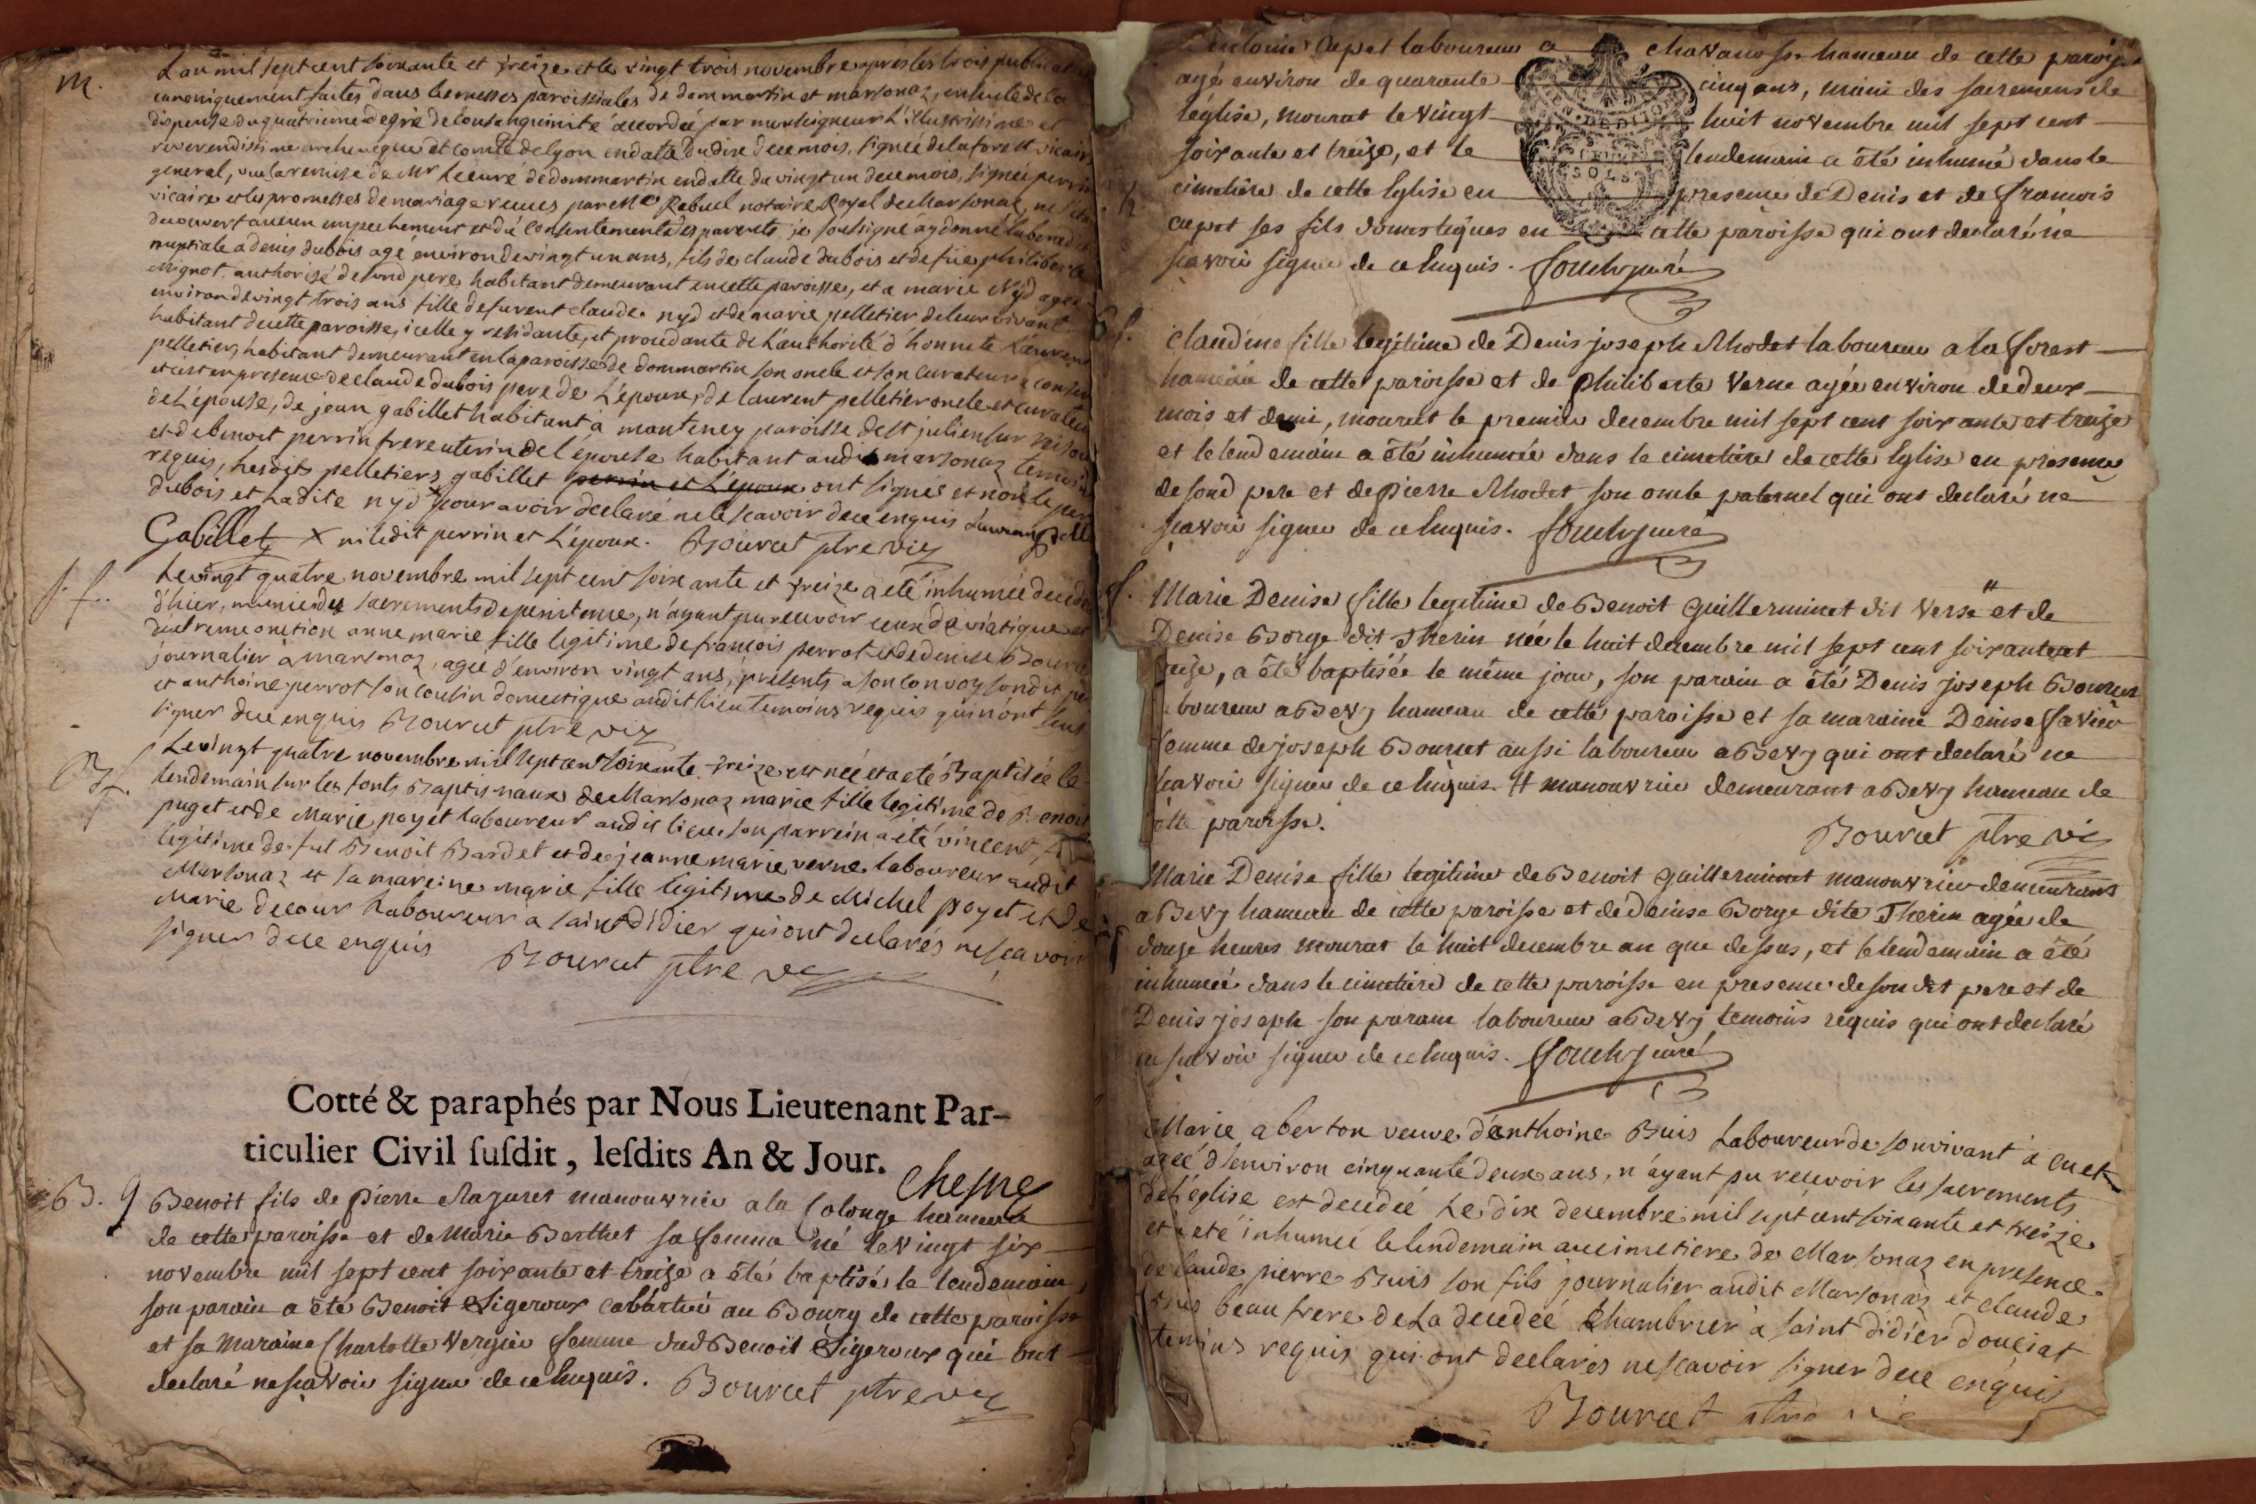 m.
L'an mil sept cent soixante et treize et le vingt trois novembre apres les trois publicat
canoniquement faites dans les messes paroissiales de dommartin et marsonaz, ensuite de la
dispense du quatrieme degré de consanguinité accordée par monseigneur L'illustrissime et
reverendissime archeveque et comte de lyon en datte du dix de ce mois, signée de la forest vicair
general, vu la remise de Mr Lecure de dommartin en datte du vingt un de ce mois, signée perrin
vicaire et les promesses de mariage reçues par Me Rebuel notaire Royal de Marsonaz, ne s'etant
decouvert aucun empechement et du consentement des parents je soussigné ay donné la bened
nuptiale a denis dubois agé environ de vingt un ans, fils de claude dubois et de fue philiberte
Mignot authorisé de sond pere habitant demeurant en cette paroisse, et a marie Nyd agée
environ de vingt trois ans fille de furent claude nyd et de marie pelletier de leur vivant
habitant de cette paroisse, icelle y residante, et procedante de L'authorité d'honnete Laurent
pelletier, habitant demeurant en la paroisse de dommartin son oncle et son curateur
et c'est en presence de claude dubois pere de L'epoux, de laurent pelletier oncle et curateur
de L'épouse, de jean gabillet habitant à manteney paroisse de st julien sur
et de benoit perrin frere uterin de l'épouse habitant audit marsonaz temoins
requis, lesdits pelletiers, gabillet perrin et L'epoux ont signés et non le per
dubois et ladite nyd pour avoir declaré ne le sçavoir de ce enquis Laurent pelle
Gabillet x ni ledit perrin et L'époux. Bourcet ptre vic
s. f.
Le vingt quatre novembre mil sept cent soixante et treize a été inhumée decedée
d'hier, munie des sacrements de penitence, n'ayant pu recevoir ceux du viatique et
d'extreme onction anne marie fille legitime de francois perrot et de denise Bour
journalier à marsonaz, agée d'environ vingt ans, présents a son convoy sondit pe
et anthoine perrot son cousin domestique audit lieu temoins requis qui n'ont sçus
signer de ce enquis Bourcet ptre vic
B f.
Le vingt quatre novembre mil sept cent soixante treize est née et a eté Baptisée le
lendemain sur les fonts Baptismaux de Marsonaz marie fille legitime de Benoit
puget et de Marie poyet laboureur audit lieu son parrein a été vincent fils
légitime de fut Benoit Bardet et de jeanne marie verne laboureur audit
Marsonaz et sa mareine marie fille légitime de Michel poyet et de
Marie decour laboureur à saint didier qui ont declarés ne sçavoir
signer de ce enquis Bourcet ptre vic
Cotté & paraphés par Nous Lieutenant Par-
ticulier Civil susdit, lesdits An & Jour.
Chesne
B. g Benoit fils de Pierre Mazuret manouvrier a la Colonge hameau
de cette paroisse et de Marie Berthet sa femme né le vingt six
novembre mil sept cent soixante et treize a été baptisé le lendemain,
son parain a été Benoit Ligeroux cabartier au Bourg de cette paroisse
et sa maraine Charlotte Vergier femme dud Benoit Ligeroux qui ont
declaré ne sçavoir signer de ce Enquis. Bourcet ptre vic
Antoine Cepet laboureur a Chavanosse hameau de cette paroisse
agé environ de quarante cinq ans, muni des sacremens de
léglise, mourut le vingt huit novembre mil sept cent
soixante et treize, et le lendemain a été inhumé dans le
cimetière de cette Eglise en presence de Denis et de francois
cepet ses fils domestiques en cette paroisse qui ont declaré ne
sçavoir signer de ce Enquis. Couchy curé
SOLS
Claudine fille legitime de Denis joseph Rhodet laboureur a la forest
hameau de cette paroisse et de Philiberte Verne agée environ de deux
mois et demi, mourut le premier decembre mil sept cent soixante et treize
et le lendemain a été inhumée dans le cimetière de cette Eglise en presence
de sond pere et de Pierre Rhodet son oncle paternel qui ont declaré ne
sçavoir signer de ce Enquis. Couchy curé
f. Marie Denise fille legitime de Benoit Guillerminet dit Verse # et de
Denise Borge dit Therin née le huit decembre mil sept cent soixante et
treize, a été baptisée le même jour, son parain a été Denis joseph Bourcet
laboureur a Bevy hameau de cette paroisse et sa maraine Denise Favier
femme de joseph Bourcet aussi laboureur a Bevy qui ont declaré ne
sçavoir signer de ce Enquis. # manouvrier demeurant a Bevy hameau de
cette paroisse.
Bourcet ptre vic
Marie Denise fille legitime de Benoit Guillerminet manouvrier demeurant
a Bevy hameau de cette paroisse et de Denise Borge dite Therin agée de
douze heures mourut le huit decembre an que dessus, et le lendemain a été
inhumée dans le cimetière de cette paroisse en presence de son dit pere et de
Denis joseph son parain laboureur a Bevy temoins requis qui ont declaré
ne sçavoir signer de ce Enquis. Couchy curé
Marie aberton veuve d'anthoine Buis Laboureur de son vivant à cuet
agée d'environ cinquante deux ans, n'ayant pu recevoir les sacrements
de L'église est decedée Le dix decembre mil sept cent soixante et treize
et a eté inhumée le lendemain au cimetiere de Marsonaz en presence
de claude pierre Buis son fils journalier audit Marsonaz et claude
Buis beau frere de La decedée chambrier à saint didier d'ouciat
temoins requis qui ont declarés ne sçavoir signer de ce enquis
Bourcet ptre vic